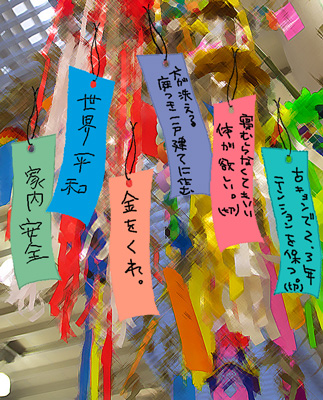 3年
テンションを保つ。(切)
寝むらなくてもいい
体が欲しい。(切)
が洗える
庭つき一戸建てに
金をくれ。
世界平和
家内安全